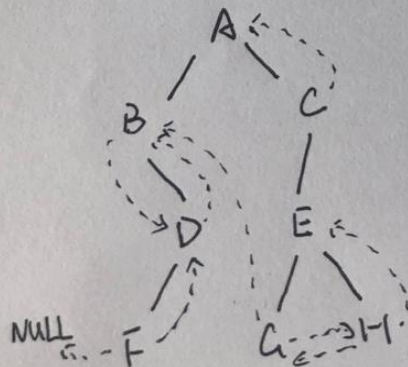 A
B C
D E
NULL F G H